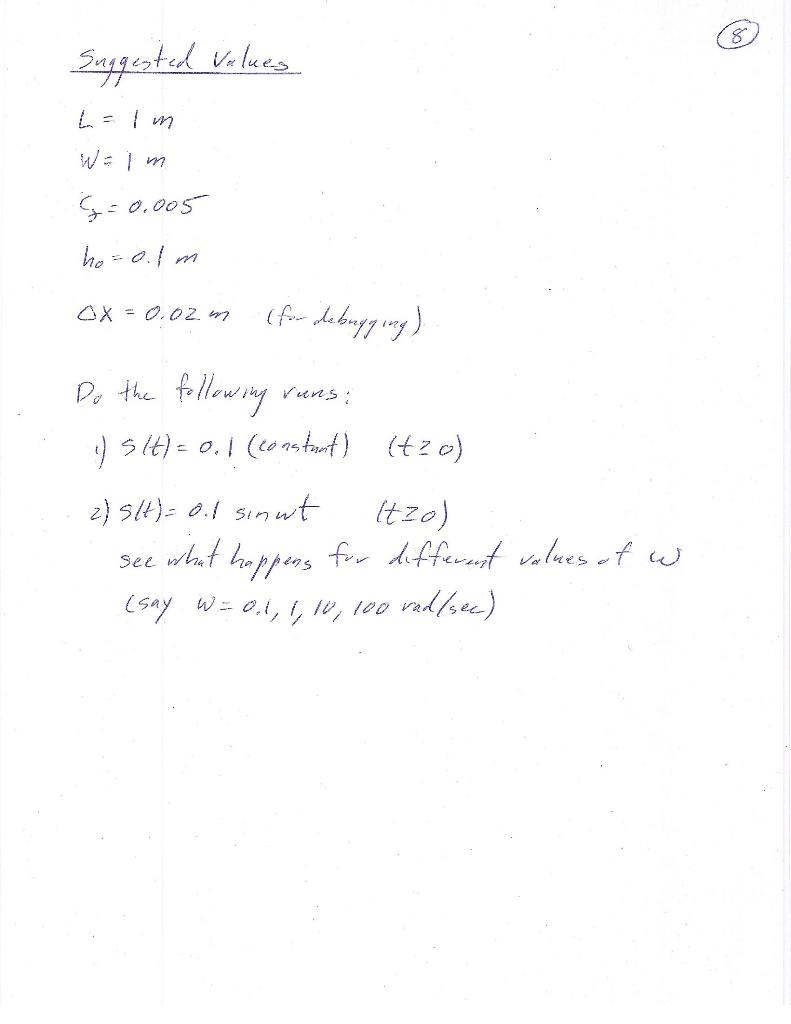 8
Suggested Values
L = 1 m
W = 1 m
Cf = 0.005
h₀ = 0.1 m
Δx = 0.02 m (for debugging)
Do the following runs:
1) S(t) = 0.1 (constant) (t ≥ 0)
2) S(t) = 0.1 sin ωt (t ≥ 0)
see what happens for different values of ω
(say ω = 0.1, 1, 10, 100 rad/sec)